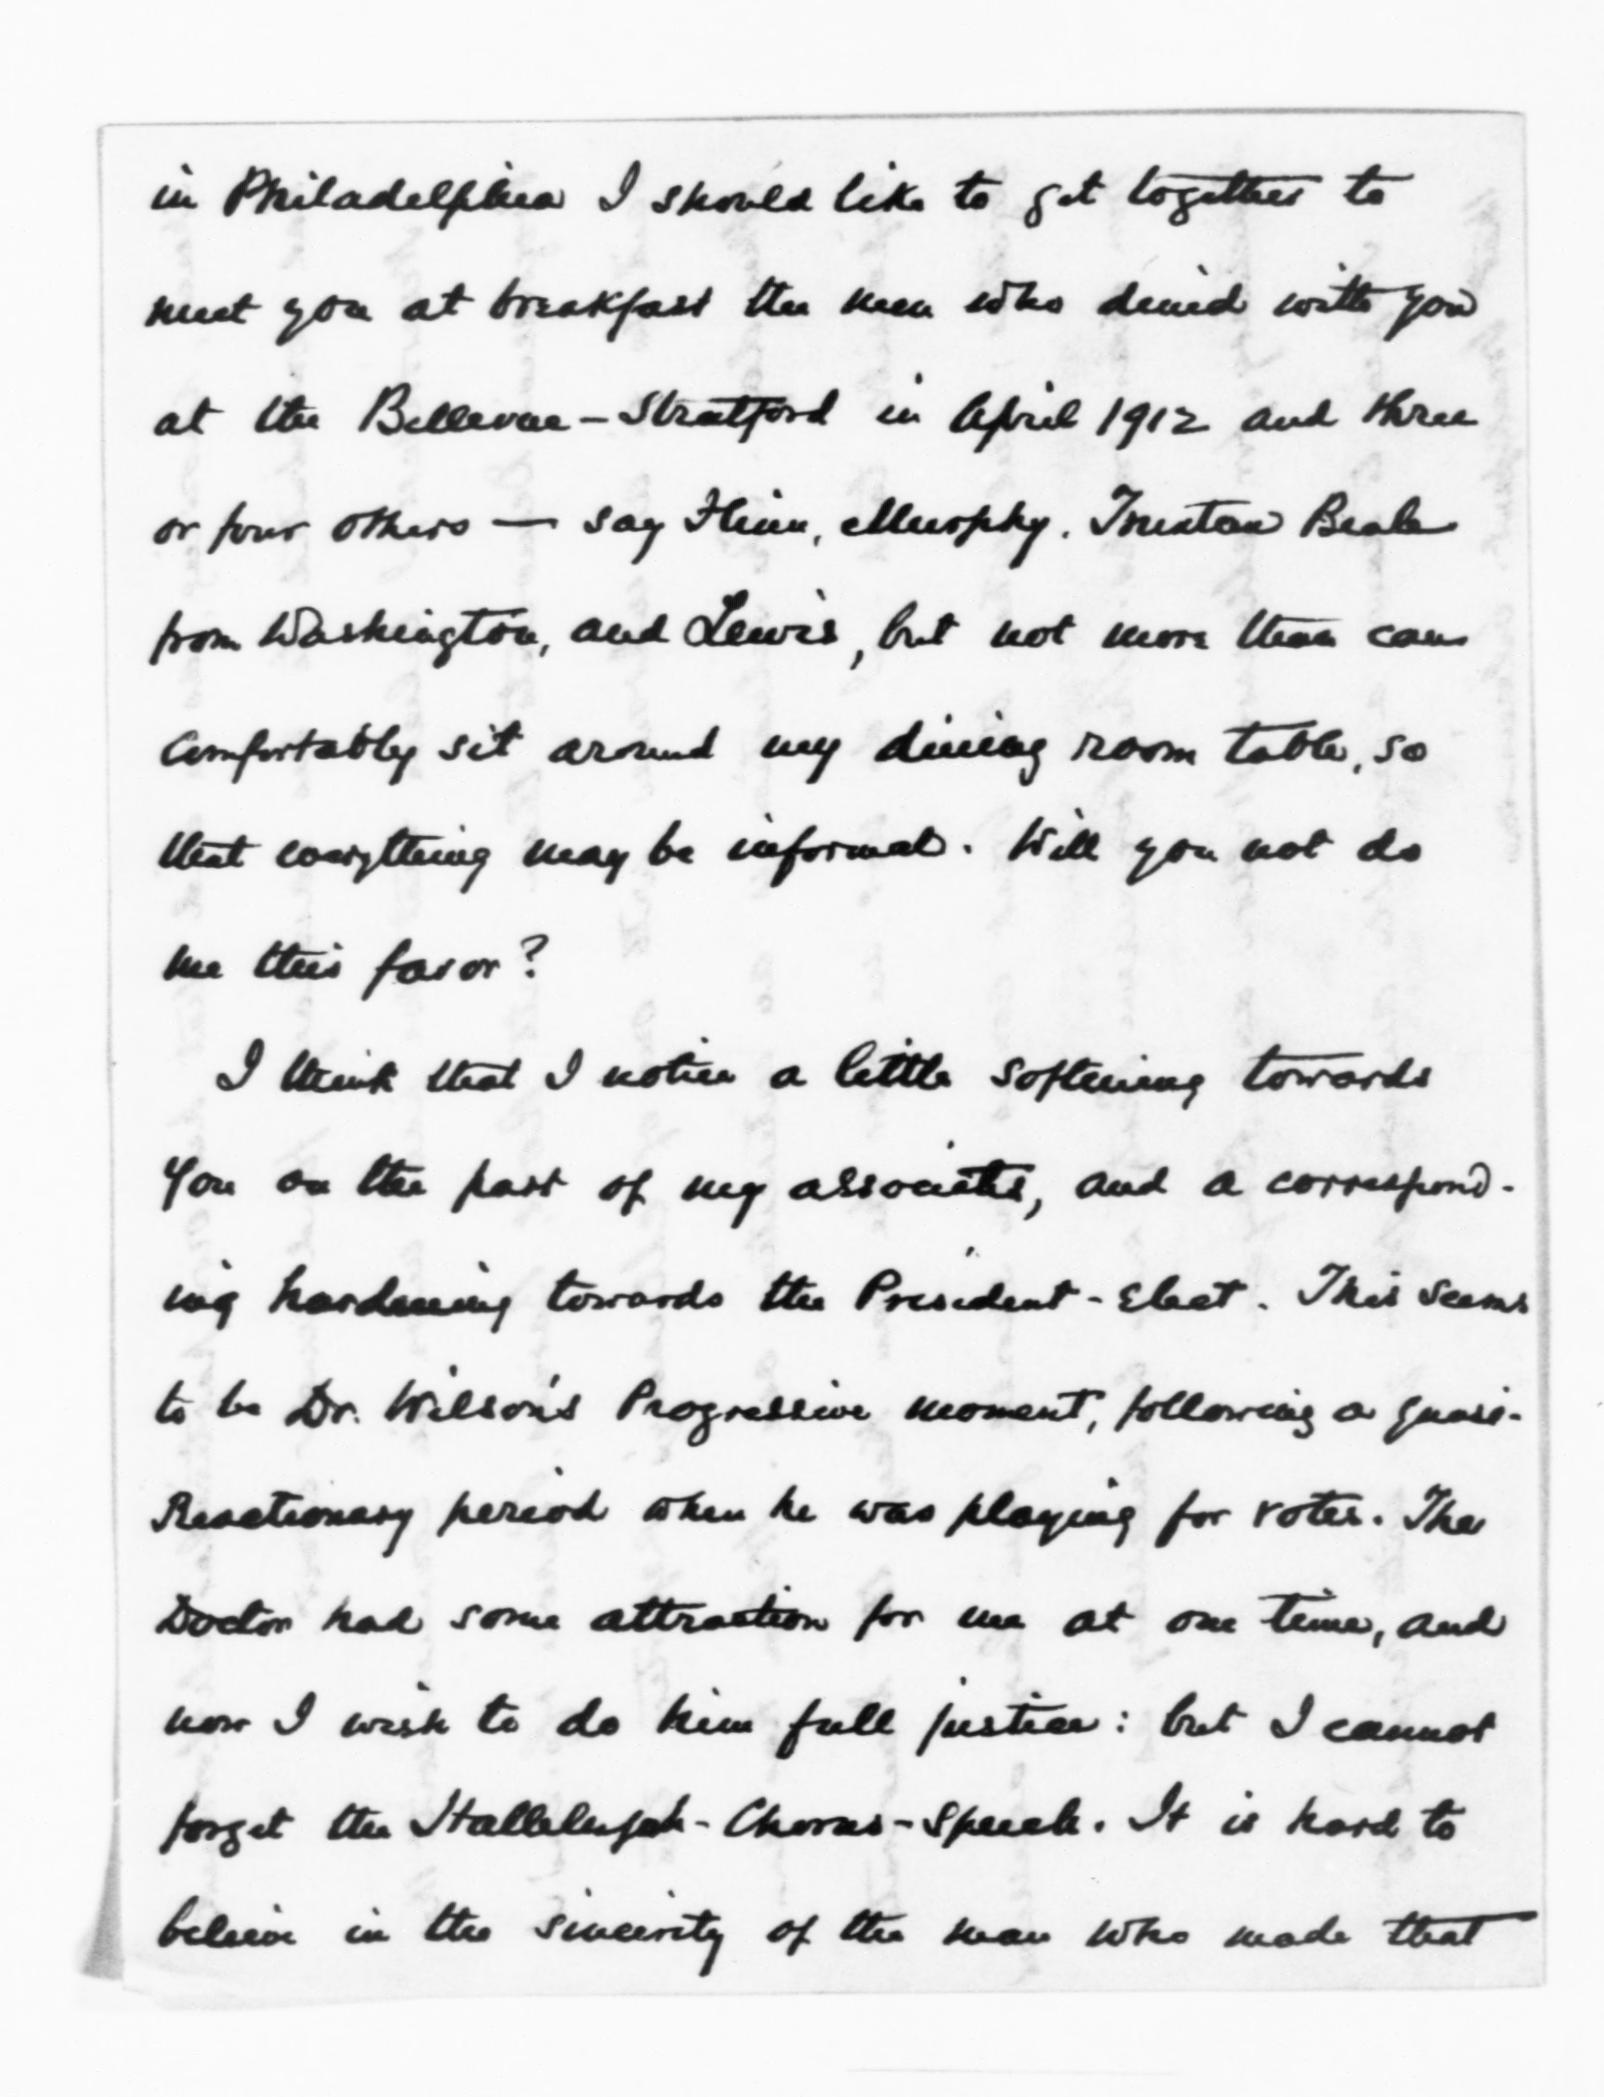 in Philadelphia I should like to get together to
meet you at breakfast the men who dined with you
at the Bellevue-Stratford in April 1912 and three
or four others — say Flinn, Murphy, Truxton Beale
from Washington, and Lewis, but not more than can
comfortably sit around my dining room table, so
that everything may be informal. Will you not do
me this favor?
I think that I notice a little softening towards
you on the part of my associates, and a correspond-
ing hardening towards the President-Elect. This seems
to be Dr. Wilson's Progressive moment, following a quasi-
Reactionary period when he was playing for votes. The
Doctor had some attraction for me at one time, and
now I wish to do him full justice: but I cannot
forget the Hallelujah-Chorus-Speech. It is hard to
believe in the sincerity of the man who made that